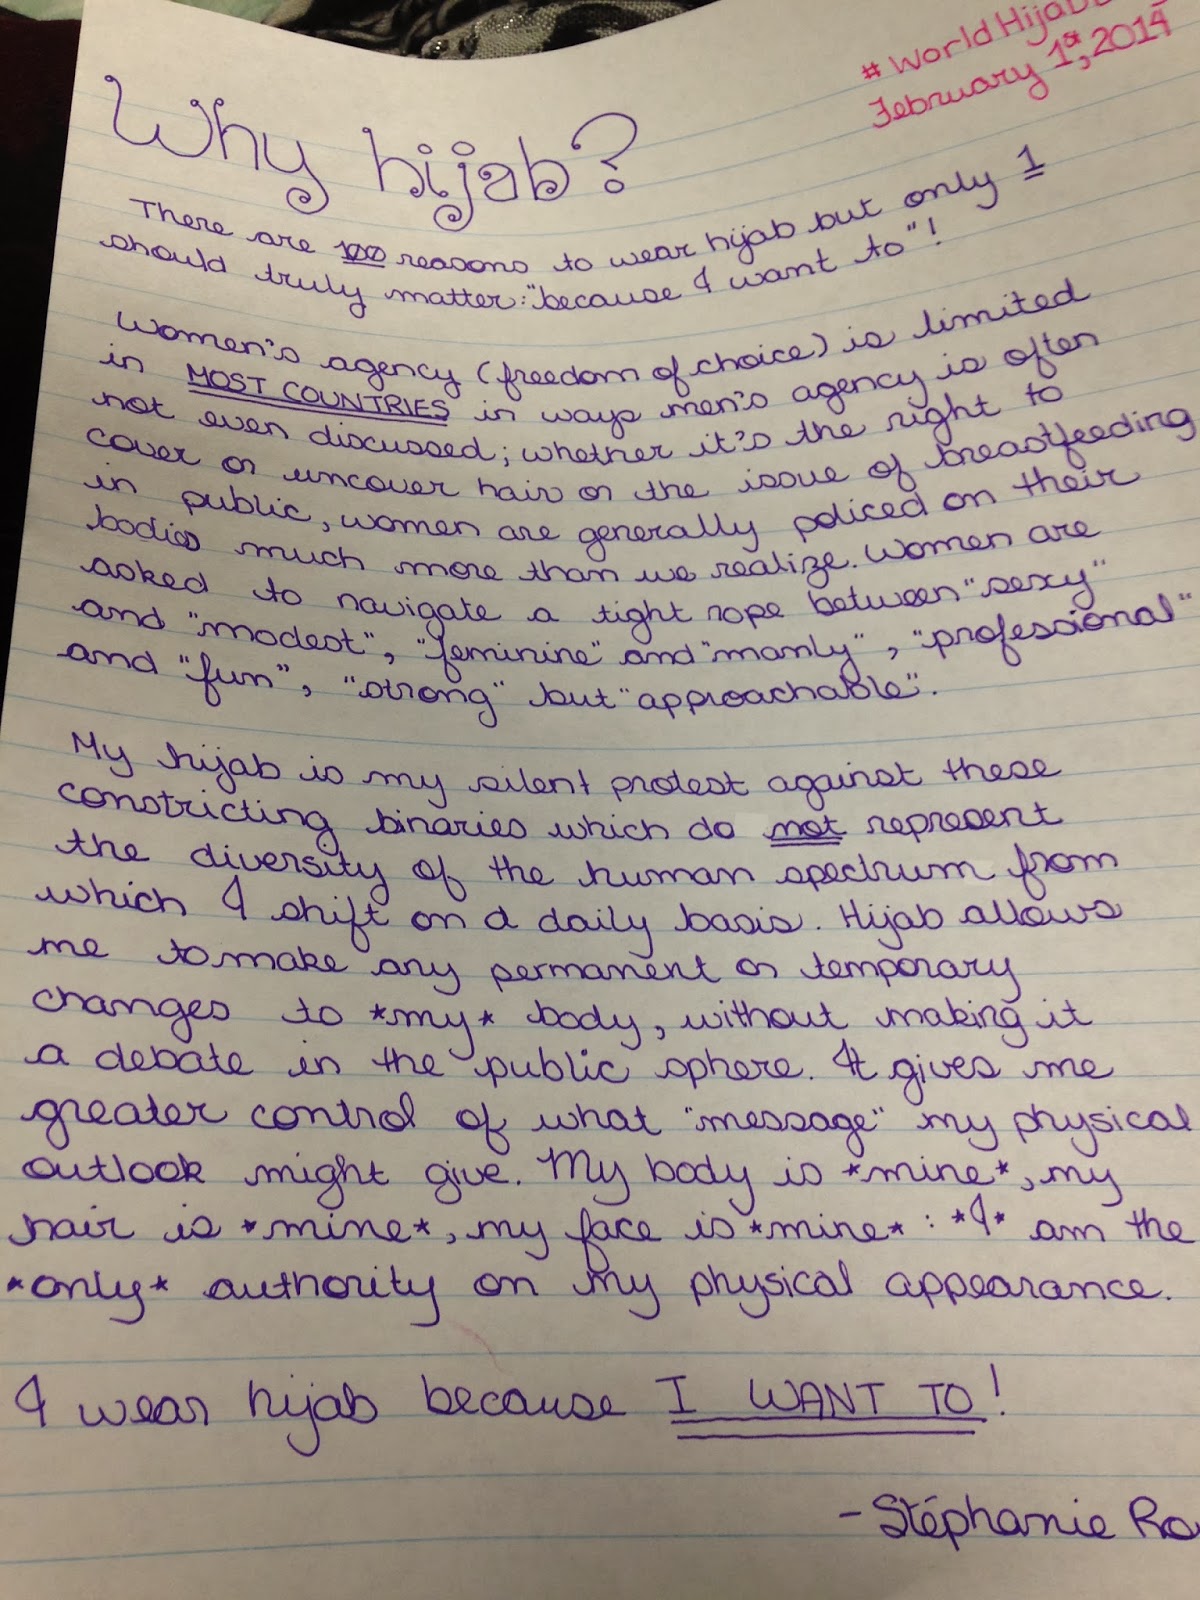 #WorldHijab
February 1st, 2014
Why hijab?
There are 100 reasons to wear hijab but only 1
should truly matter: "because I want to"!
Women's agency (freedom of choice) is limited
in MOST COUNTRIES in ways men's agency is often
not even discussed; whether it's the right to
cover or uncover hair or the issue of breastfeeding
in public, women are generally policed on their
bodies much more than we realize. Women are
asked to navigate a tight rope between "sexy"
and "modest", "feminine" and "manly", "professional"
and "fun", "strong" but "approachable".
My hijab is my silent protest against these
constricting binaries which do not represent
the diversity of the human spectrum from
which I shift on a daily basis. Hijab allows
me to make any permanent or temporary
changes to *my* body, without making it
a debate in the public sphere. It gives me
greater control of what "message" my physical
outlook might give. My body is *mine*, my
hair is *mine*, my face is *mine*: *I* am the
*only* authority on my physical appearance.
I wear hijab because I WANT TO!
- Stéphanie Ro